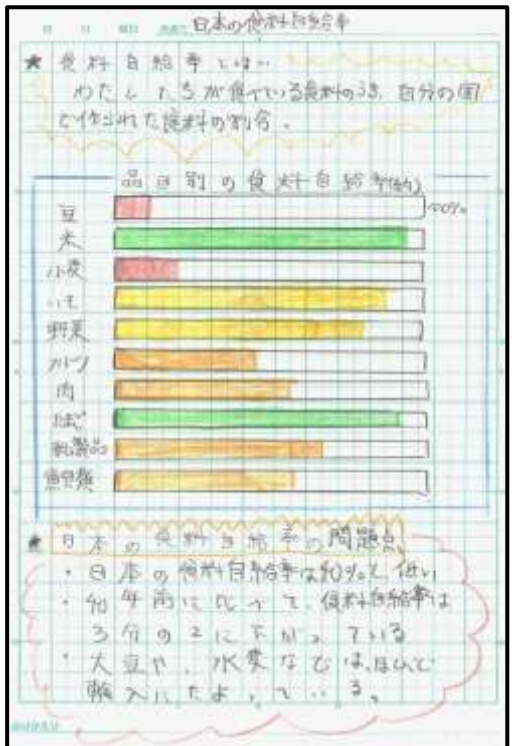 日本の食料自給率
★ 食料自給率とは…
わたしたちが食べている食料のうち、自分の国
で作られた食料の割合。
品目別の食料自給率(約)
100%
豆
米
小麦
いも
野菜
フルーツ
肉
たまご
乳製品
魚貝類
★ 日本の食料自給率の問題点
・日本の食料自給率は40%と、低い
・40年前に比べて、食料自給率は
3分の2に下がっている
・大豆や、小麦などは、ほとんど
輸入にたよっている。